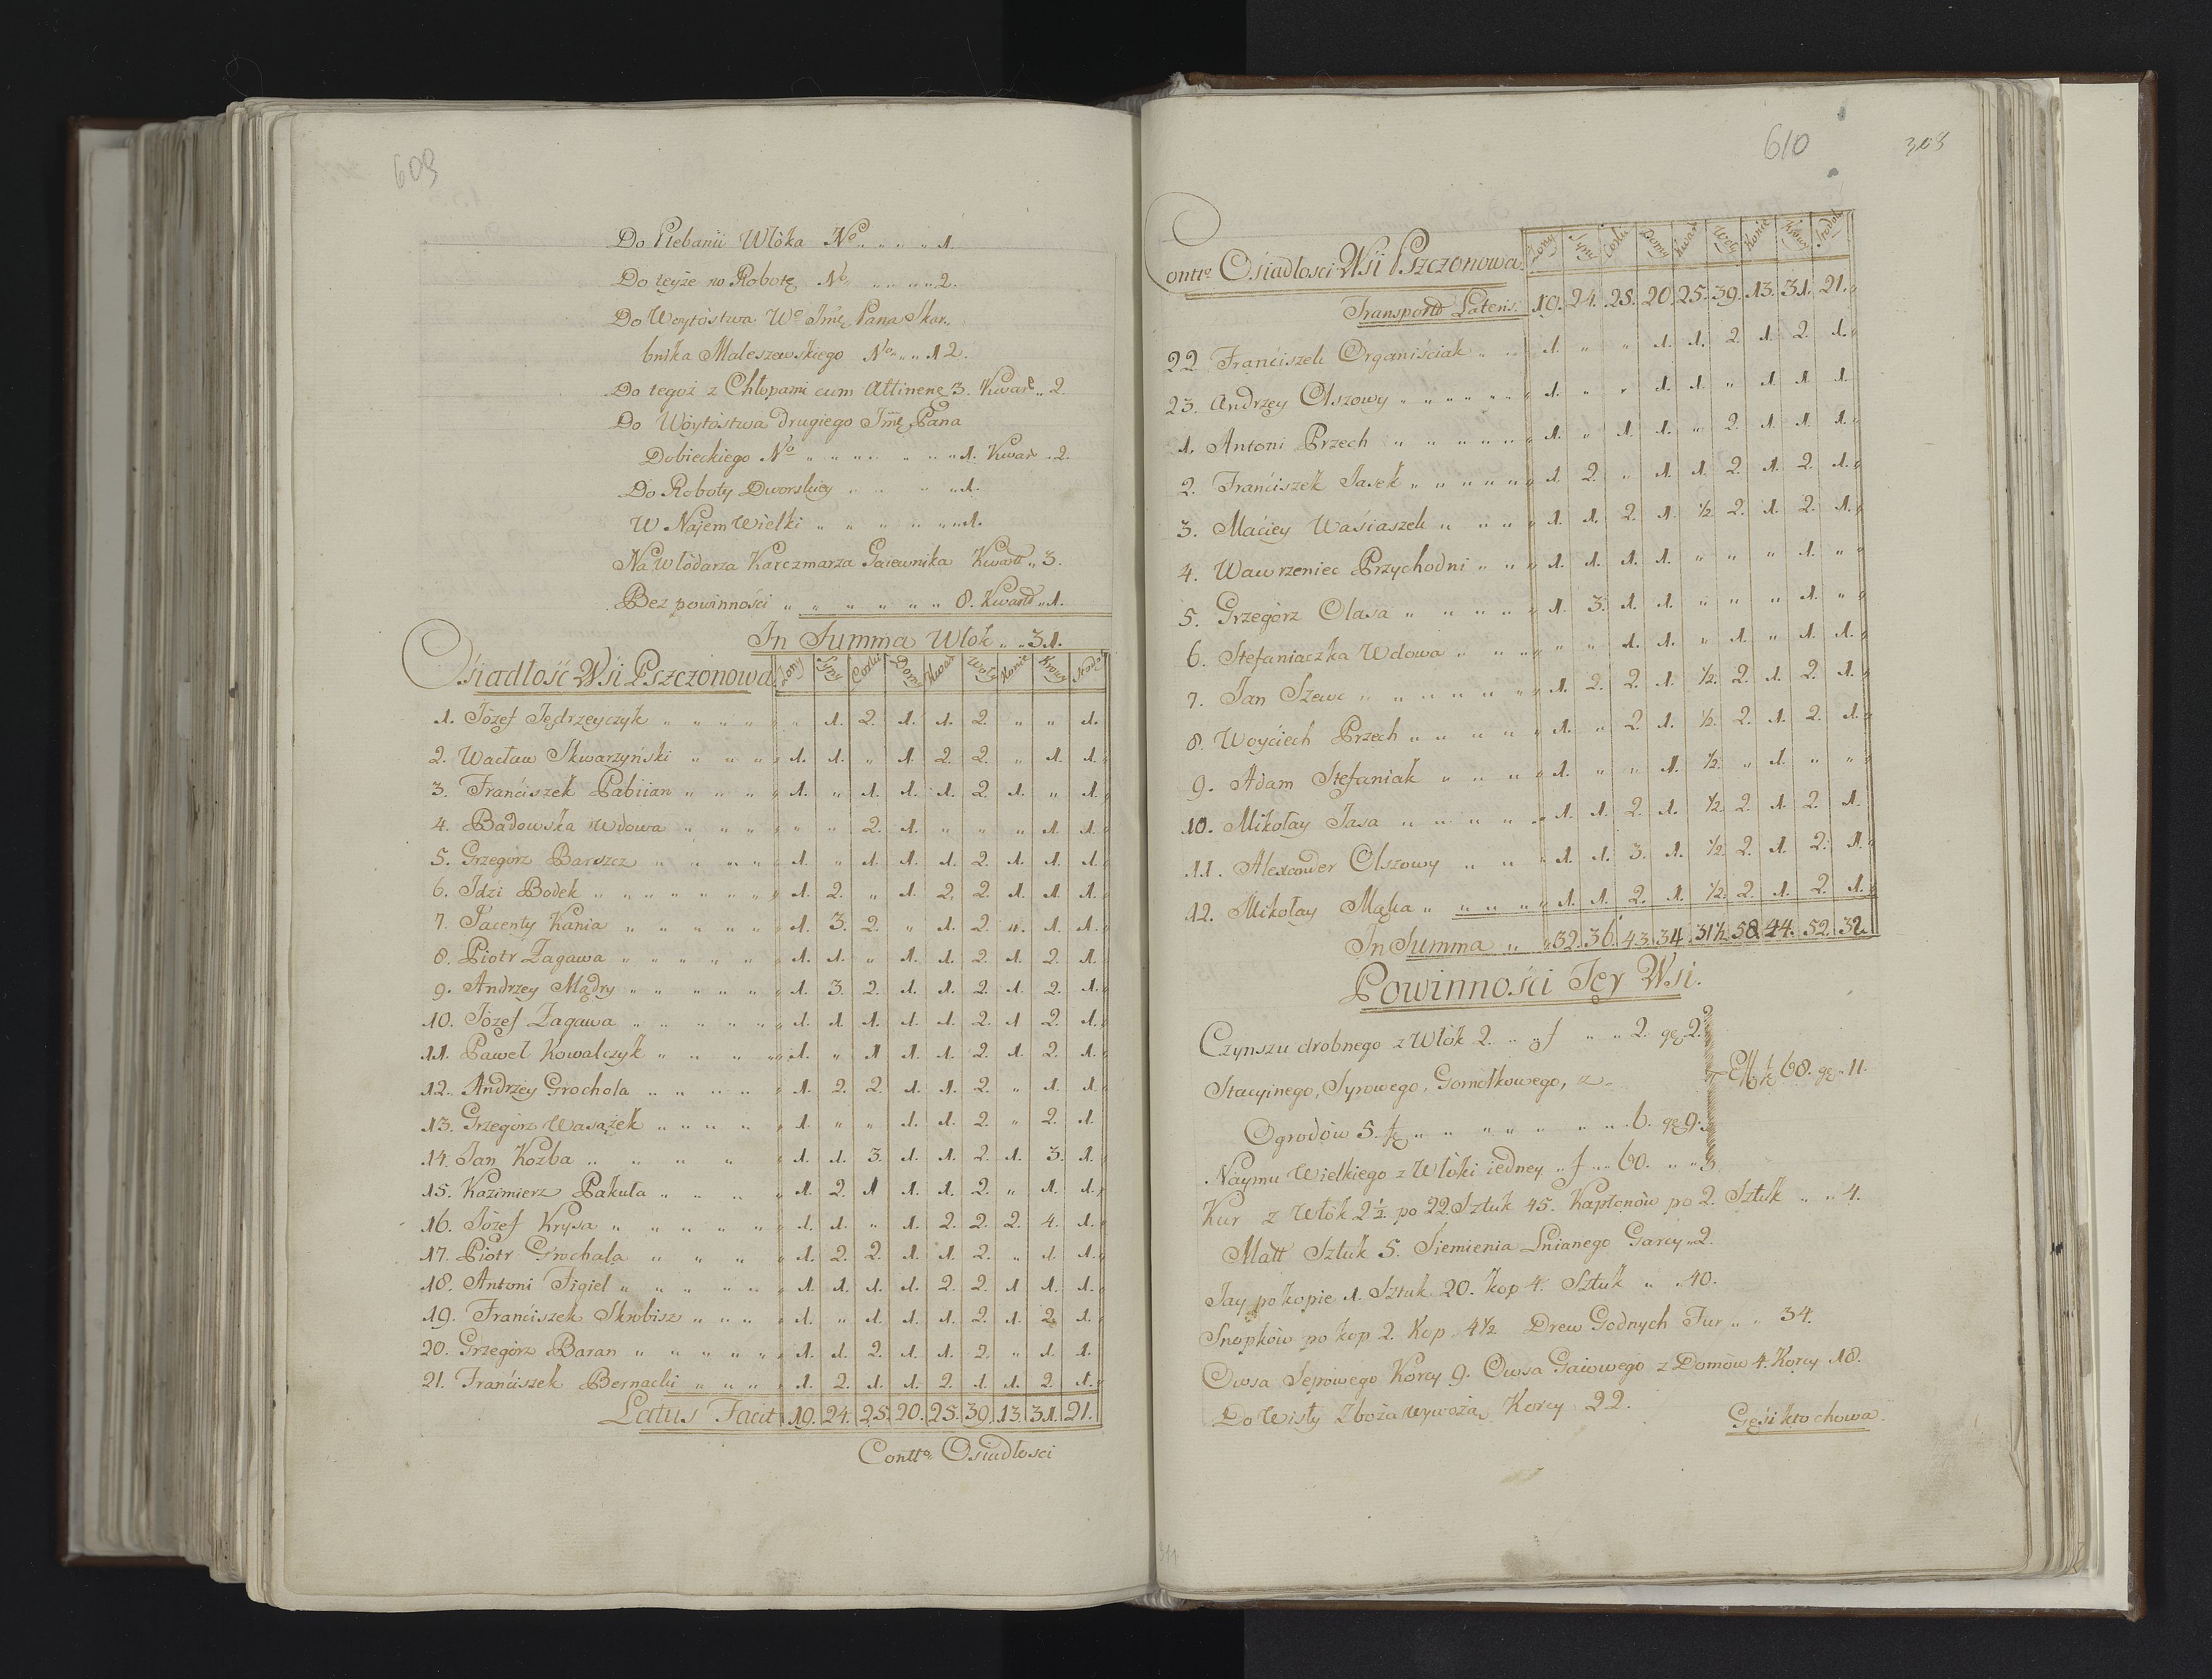 609
Do Plebanii Włóka No „ „ „ „ 1.
Do teyże na Robotę No „ „ „ „ 2.
Do Woytostwa Wo Jmę Pana Skar„
bnika Maleszewskiego No „ „ „ 12.
Do tegoż z Chłopami cum Attinenę 3. Kwart „ 2.
Do Wóytostwa drugiego Jmę Pana
Dobieckiego No „ „ „ „ „ „ 1. Kwart „ 2.
Do Roboty Dworskiey „ „ „ „ 1.
W Najem Wielki „ „ „ „ „ „ 1.
Na Włodarza Karczmarza Gaiewnika Kwart „ 3.
Bez powinności „ „ „ „ „ „ 8. Kwart „ 1.
In Summa Włok „ „ 31.
Osiadłość Wsi Pszczonowa Żony Syny Corki Domy Kwart Woły Konie Krowy Stodoł
1. Józef Jędrzeyczyk „ „ „ „ „ 1. 2. 1. 1. 2. „ „ 1.
2. Wacław Skwarzyński „ „ „ 1. 1. „ 1. 2. 2. „ 1. 1.
3. Franciszek Pabiian „ „ „ 1. „ 1. 1. 1. 2. 1. „ 1.
4. Badowska Wdowa „ „ „ „ „ 2. 1. „ „ „ 1. 1.
5. Grzegorz Barszcz „ „ „ „ 1. „ 1. 1. 1. 2. 1. 1. 1.
6. Idzi Bodek „ „ „ „ „ „ 1. 2. „ 1. 2. 2. 1. 1. 1.
7. Jacenty Kania „ „ „ „ „ 1. 3. 2. „ 1. 2. „ 1. 1.
8. Piotr Zagawa „ „ „ „ „ 1. 1. „ 1. 1. 2. 1. 2. 1.
9. Andrzey Mądry „ „ „ „ „ 1. 3. 2. 1. 1. 2. 1. 2. 1.
10. Józef Zagawa „ „ „ „ „ 1. 1. 1. 1. 1. 2. 1 2. 1.
11. Paweł Kowalczyk „ „ „ „ 1. „ 1 1. 1. 2. 1. 2. 1.
12. Andrzey Grochola „ „ „ „ 1. 2. 2. 1. 1. 2. „ 1. 1.
13. Grzegorz Wasążek „ „ „ „ 1. „ „ 1. 1. 2. „ 2. 1.
14. Jan Kozba „ „ „ „ „ 1. 1. 3. 1. 1. 2. 1. 3. 1.
15. Kazimierz Pakuła „ „ „ „ 1. 2. 1 1. 1. 2. „ 1. 1.
16. Józef Krysa „ „ „ „ „ „ 1. 1. „ 1. 2. 2. 2. 4. 1.
17. Piotr Grochala „ „ „ „ 1. 2. 2. 1. 1. 2. „ 1. 1.
18. Antoni Figiel „ „ „ „ „ 1. 1. 1. 1. 2. 2. 1 1. 1.
19. Franciszek Skrobisz „ „ „ 1. „ 1. 1. 1. 2. 1. 2. 1.
20. Grzegorz Baran „ „ „ „ „ 1. 1. 2. 1. 1. 2. „ 1. 1.
21. Franciszek Bernacki „ „ „ 1. 2. 1. 1. 2. 1. 1. 2. 1.
Latus Facit 19. 24. 25. 20. 25. 39. 13. 31. 21.
Contto Osiadłosci
610
303
Contto Osiadłosci Wsi Pszczonowa Żony Syny Corki Domy Kwart Woły Konie Krowy Stodoł
Transport Lateris. 19. 24. 25. 20. 25. 39. 13. 31. 21.
22 Franciszek Organiściak „ „ 1. „ „ 1. 1. 2. 1. 2. 1.
23. Andrzey Olszowy „ „ „ „ „ 1. „ „ 1. 1. „ 1. 1. 1.
1. Antoni Przech „ „ „ „ „ 1. „ 1. 1. „ 2. 1. 1. 1.
2. Franciszek Jasek „ „ „ „ „ 1. 2. „ 1. 1. 2. 1. 2. 1.
3. Maciey Wasiaszek „ „ „ „ 1. 1. 2. 1. ½ 2. 1. 2. 1.
4. Wawrzeniec Przychodni „ „ „ 1. 1. 1. 1. „ „ „ 1. „
5. Grzegorz Olasa „ „ „ „ „ 1. 3. 1. 1. „ „ „ 1. „
6. Stefaniaczka Wdowa „ „ „ „ „ „ 1. 1. „ 1. „ 1. 1.
7. Jan Szewc „ „ „ „ „ „ 1. 2. 2. 1. ½. 2. 1. 2. 1.
8. Woyciech Przech „ „ „ „ „ 1. „ 2. 1. ½. 2. 1. 2. 1.
9. Adam Stefaniak „ „ „ „ 1. „ „ 1. ½. „ 1. „ „
10. Mikołay Jasa „ „ „ „ „ 1. 1. 2. 1. ½. 2. 1. 2. 1.
11. Alexander Olszowy „ „ „ 1. 1. 3. 1. ½. 2. 1. 2. 1.
12. Mikołay Mąka „ „ „ „ „ 1. 1. 2. 1. ½. 2. 1. 2. 1.
In Summa „ „ 32. 36. 43. 34. 31½. 58. 44. 52. 32.
Powinności Tey Wsi.
Czynszu drobnego z Włók 2. „ „ f „ „ 2. gę. 2.
Stacyinego, Sypowego, Gomółkowego, z
Ogrodów 5. „ „ „ „ „ „ „ 6. gę 9.
68. gę. 11.
Naymu Wielkiego z Włóki iedney „ f „ „ 60. „ „
Kur z Włók 2½. po 22. Sztuk 45. Kapłonów po 2. Sztuk „ „ 4.
Matt Sztuk 5. Siemienia Lnianego Garcy „ 2.
Jay po kopie 1. Sztuk 20. kop 4. Sztuk „ „ 40.
Snopków po kop 2. Kop „ 4½ Drew Godnych Fur „ „ 34.
Owsa Sepowego Korcy 9. Owsa Gaiowego z Domów 4. Korcy 18.
Do Wisły Zboża wywożą Korcy 22.
Gęsi kto chowa.